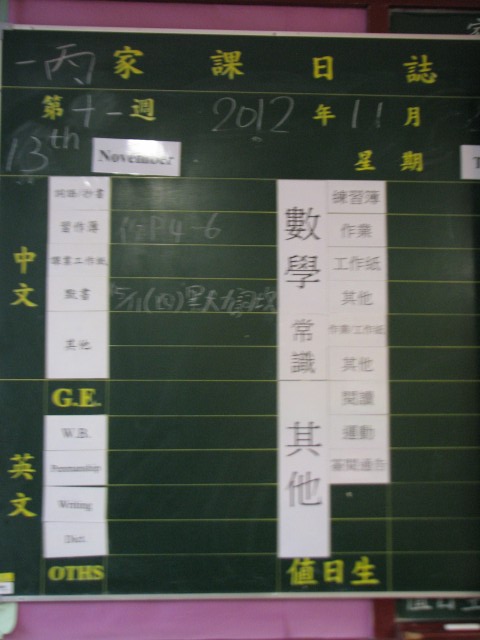 一丙 家課日誌
第十一週 2012年11月
13th November 星期 T
中文
詞語/抄書
習作簿 作P4-6
工作紙
默書 15/11(四)
其他
英文
G.E.
W.B.
Penmanship
Writing
Dict.
OTHS
數學
練習簿
作業
工作紙
其他
常識
作業/工作紙
其他
其他
閱讀
運動
簽閱通告
值日生
值日生